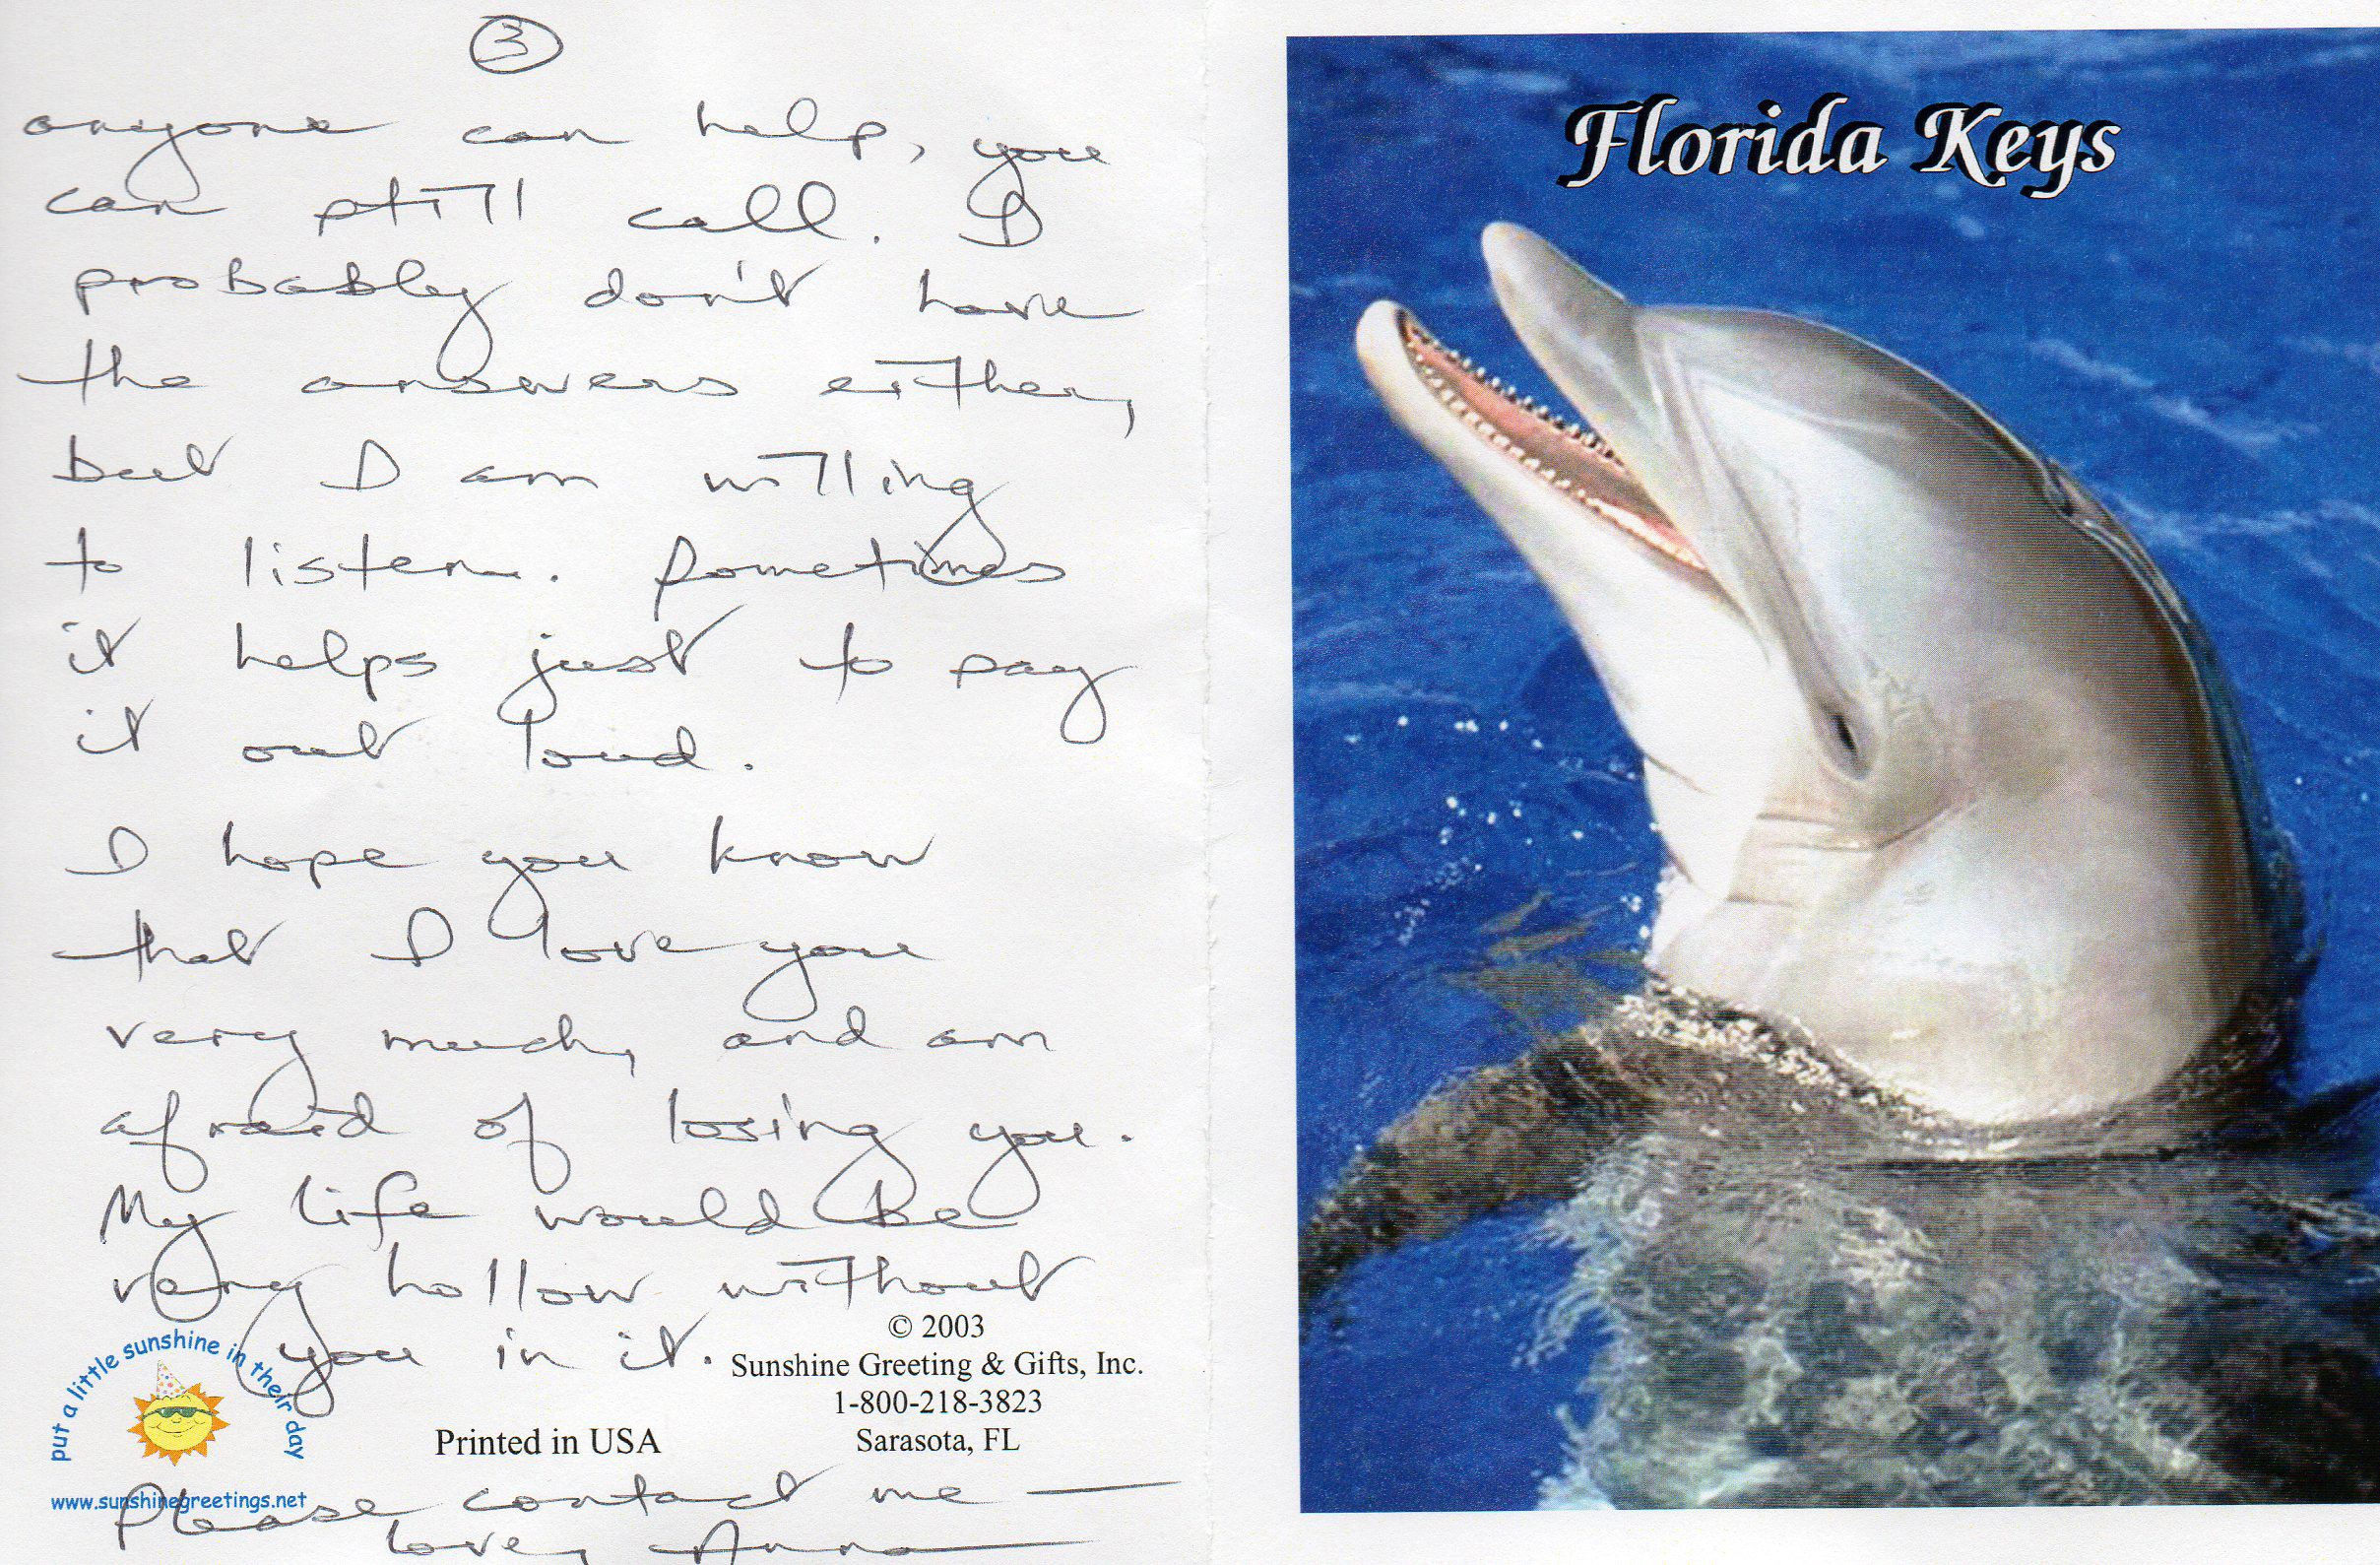 3
anyone can help, you
can still call. I
probably don't have
the answers either,
but I am willing
to listen. Sometimes
it helps just to say
it out loud.
I hope you know
that I love you
very much, and am
afraid of losing you.
My life would be
very hollow without
you in it.
© 2003
Sunshine Greeting & Gifts, Inc.
1-800-218-3823
Sarasota, FL
Printed in USA
put a little sunshine in their day
www.sunshinegreetings.net
Please contact me —
Love, Anna
Florida Keys